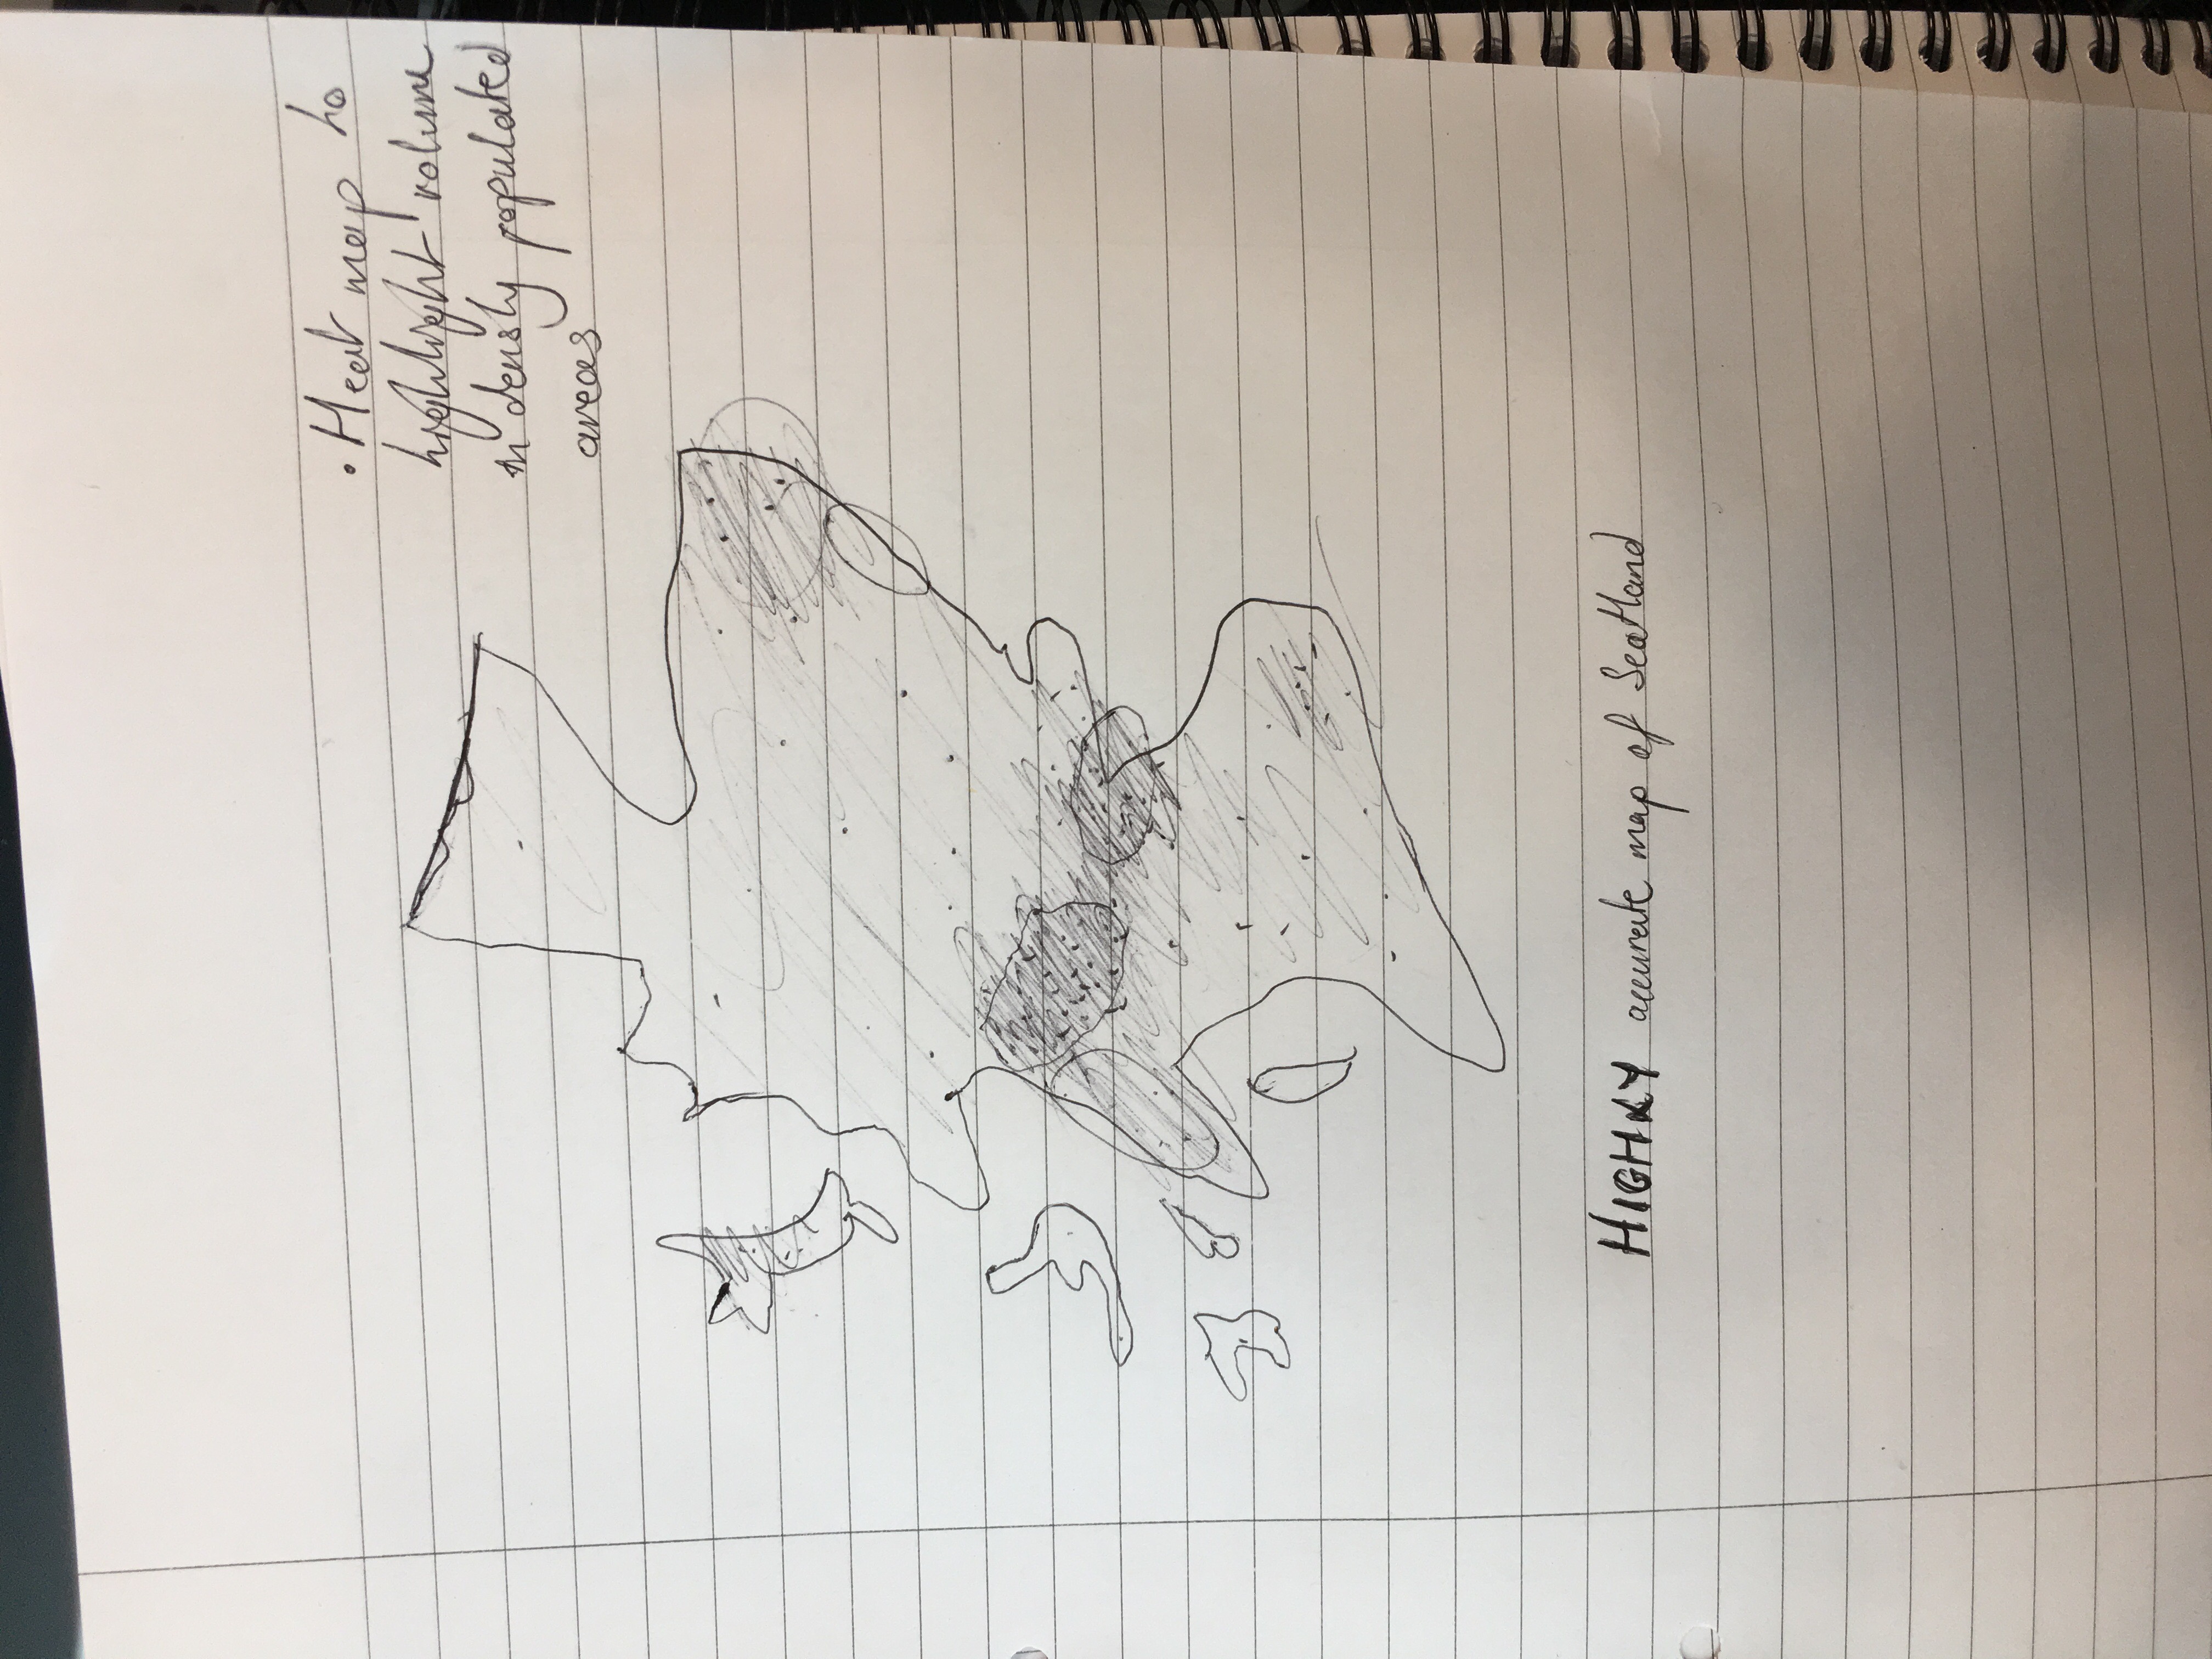 • Heat map to
highlight volume
in densly populated
areas
HIGHLY accurate map of Scotland